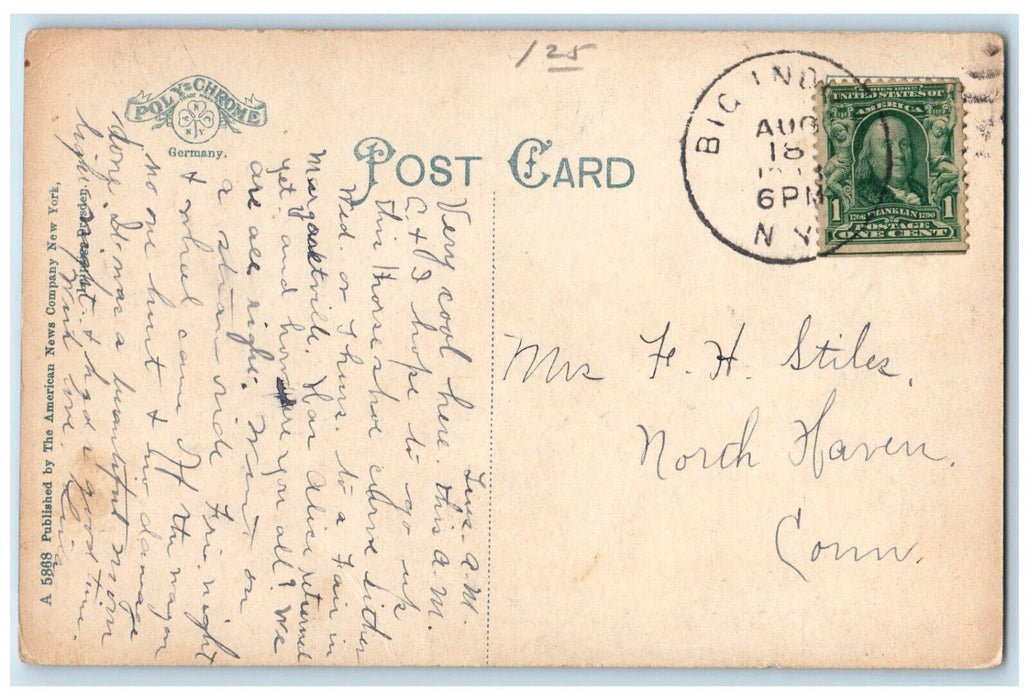 125
POLY-CHROME
TRADE MARK
Germany.
POST CARD
BIG IND
AUG
18
6 PM
N.Y.
SERIES 1902
UNITED STATES OF
AMERICA
1 1
1706 FRANKLIN 1790
POSTAGE
ONE CENT
Mrs F. H. Stiles,
North Haven.
Conn.
Tues. a.m.
Very cool here. this a.m.
C. & I hope to go up
this Horse shoe curve either
Wed. or Thurs. to a Fair in
Margaretville. Has Alice returned
yet, and how are you all? We
are all right. Went on
a straw ride Fri. night
& wheel came off the wagon
no one hurt & no damage
done. It was a beautiful moon
light night & had a good time.
With love.
A 5868 Published by The American News Company New York,
Leipzig, Dresden